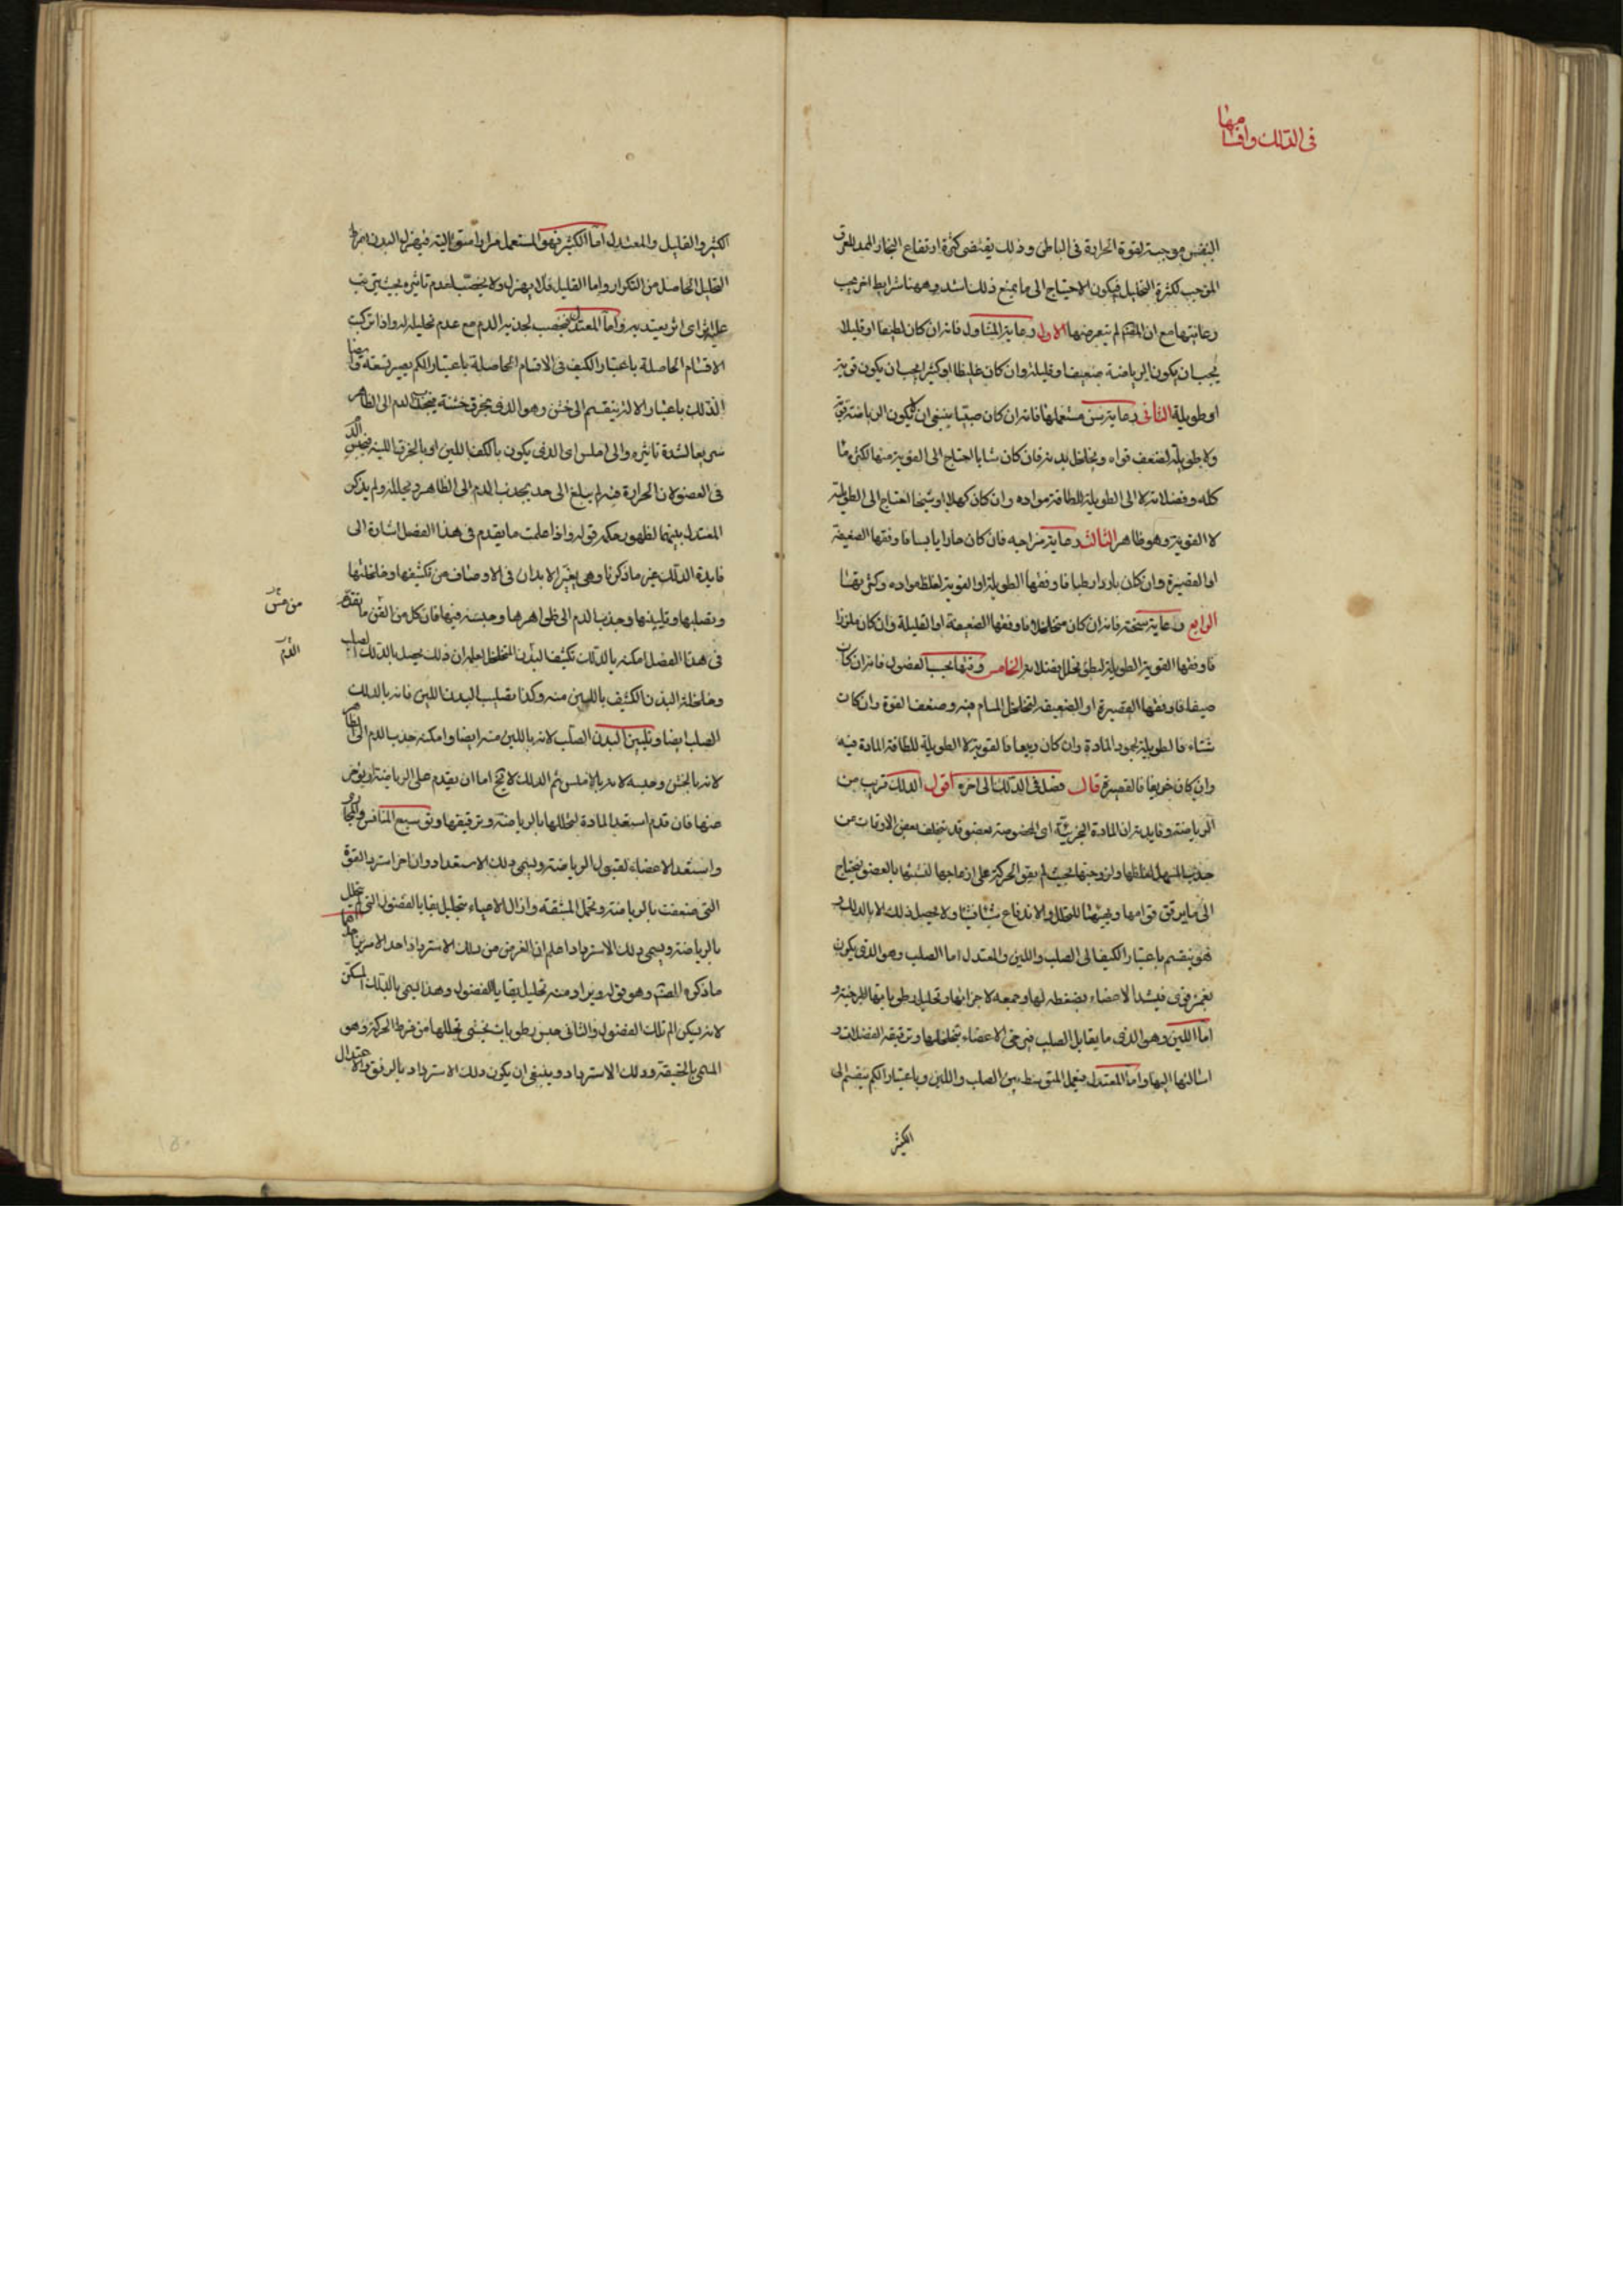 في الدلك واقسامها
النفس موجبة لقوة الحرارة في الباطن وذلك يقتضي كثرة ارتفاع البخار الممد للعرق
الموجب لكثرة التحليل فيكون الاحتياج الى ما يمنع ذلك اشد وههنا شرايط اخر يجب
رعايتها مع ان المصنف لم يتعرضها الاول رعاية المتناول فانه ان كان لطيفا او قليلا
يجب ان يكون الرياضة ضعيفة وقليلة وان كان غليظا او كثيرا يجب ان يكون قوية
او طويلة الثاني رعاية سن مستعملها فانه ان كان صبيا ينبغي ان لا يكون الرياضة قوية
ولا طويلة لضعف قواه وتخلخل بدنه فان كان شابا احتاج الى القوية منها لكثرة ما
كله وفضلاته لا الى الطويلة للطافة مواده وان كان كهلا او شيخا احتاج الى الطويلة
لا القوية وهو ظاهر الثالث رعاية مزاجه فان كان حارا يابسا فاوفقها الضعيفة
او القصيرة وان كان باردا رطبا فاوفقها الطويلة او القوية لغلظ مواده وكثرتها
الرابع رعاية سحنته فانه ان كان متخلخلا فاوفقها الضعيفة او القليلة وان كان ملززا
فاوفقها القوية الطويلة لبطئ تحلل فضلاته الخامس وقتها بحسب الفصول فانه ان كان
صيفا فاوفقها القصيرة او الضعيفة لتخلخل المسام فيه وضعف القوة وان كان
شتاء فالطويلة لجمود المادة وان كان ربيعا فالقوية لا الطويلة للطافة المادة فيه
وان كان خريفا فالقصيرة قال فصل في الدلك الى اخره اقول الدلك قريب من
الرياضة وفايدته ان المادة الجزئية اى المخصوصة بعضو قد يتخلف بعض الاوقات عن
جذب المسهل لغلظها ولزوجتها بحيث لم يقو الحركة على ازعاجها لتشبثها بالعضو فيحتاج
الى ما يرقق قوامها ويهيئها للتحلل والاندفاع شيئا فشيئا ولا يحصل ذلك الا بالدلك و
هو ينقسم باعتبار الكيف الى الصلب واللين والمعتدل اما الصلب وهو الذي يكون
بغمز قوى فيشد الاعضاء بضغطه لها وجمعه لاجزائها وتحليل رطوباتها المرخية و
اما اللين وهو الذي ما يقابل الصلب فيرخى الاعضاء بتخلخلها وترقيقه الفضلات و
اسالتها اليها واما المعتدل فيعمل المتوسط بين الصلب واللين وباعتبار الكم ينقسم الى
الكثير
الكثير والقليل والمعتدل اما الكثير فهو المستعمل مرارا متوالية فيهزل البدن لفرط
التحليل الحاصل من التكرار واما القليل فلا يهزل ولا يخصب لعدم تاثيره بحيث يترتب
عليه اثر اى اثر يعتد به واما المعتدل فيخصب لجذبه الدم مع عدم تحليله له واذا تركبت
الاقسام الحاصلة باعتبار الكيف في الاقسام الحاصلة باعتبار الكم يصير تسعة وايضا
الدلك باعتبار الالة ينقسم الى خشن وهو الذي بخرق خشنة فيجذب الدم الى الظاهر
سريعا لشدة تاثيره والى املس اى الذي يكون بالكف اللين او بالخرق اللينة فيحبس الدم
في العضو لان الحرارة فيه لم يبلغ الى حد يجذب الدم الى الظاهر ويحلله ولم يذكر
المعتدل بينهما لظهور حكمه قوله واذا علمت ما يقدم في هذا الفصل اشارة الى
فايدة الدلك غير ما ذكرنا وهي تغير الابدان في الاوصاف من تكثيفها وخلخلتها
وتصلبها وتليينها وجذب الدم الى ظواهرها وحبسه فيها فان كل من اتقن ما تقدم
في هذا الفصل امكنه بالدلك تكثيف البدن المتخلخل لعلمه ان ذلك يحصل بالدلك الصلب
وخلخلة البدن الكثيف باللين منه وكذا تصليب البدن اللين فانه بالدلك
الصلب ايضا وتليين البدن الصلب لانه باللين منه ايضا وامكنه جذب الدم الى الظاهر
لانه بالخشن وحبسه لانه بالاملس ثم الدلك لا يخ اما ان يقدم على الرياضة او يؤخر
عنها فان قدم استعد المادة لتحللها بالرياضة وترقيقها وتوسيع المنافس والمجارى
واستعد الاعضاء لقبول الرياضة ويسمى دلك الاستعداد وان اخر استرد القوة
التي ضعفت بالرياضة وتحمل المشقة وازال الاعياء بتحليل بقايا الفضول التي تحلل
بالرياضة ويسمى دلك الاسترداد اعلم ان الغرض من دلك الاسترداد احد الامرين احدهما
ما ذكره المصنف وهو قوله ويراد منه تحليل بقايا الفضول وهذا يسمى بالدلك المسكن
لانه يسكن الم تلك الفضول والثاني حبس رطوبات يخشى تحللها من فرط الحركة وهو
المسمى بالحقيقة ودلك الاسترداد وينبغي ان يكون دلك الاسترداد بالرفق والاعتدال